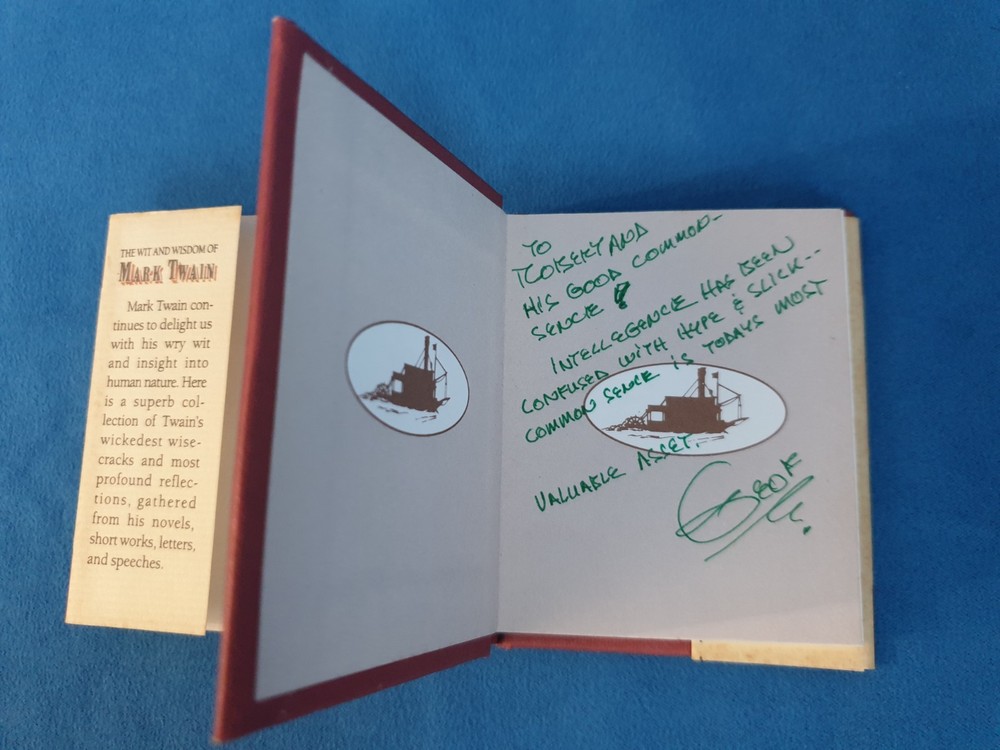 THE WIT AND WISDOM OF
MARK TWAIN
Mark Twain con-
tinues to delight us
with his wry wit
and insight into
human nature. Here
is a superb col-
lection of Twain's
wickedest wise-
cracks and most
profound reflec-
tions, gathered
from his novels,
short works, letters,
and speeches.
TO
ROBERT AND
HIS GOOD COMMON-
SENCE!
INTELLEGENCE HAS BEEN
CONFUSED WITH HYPE & SLICK--
COMMON SENCE IS TODAYS MOST
VALUABLE ASSET.